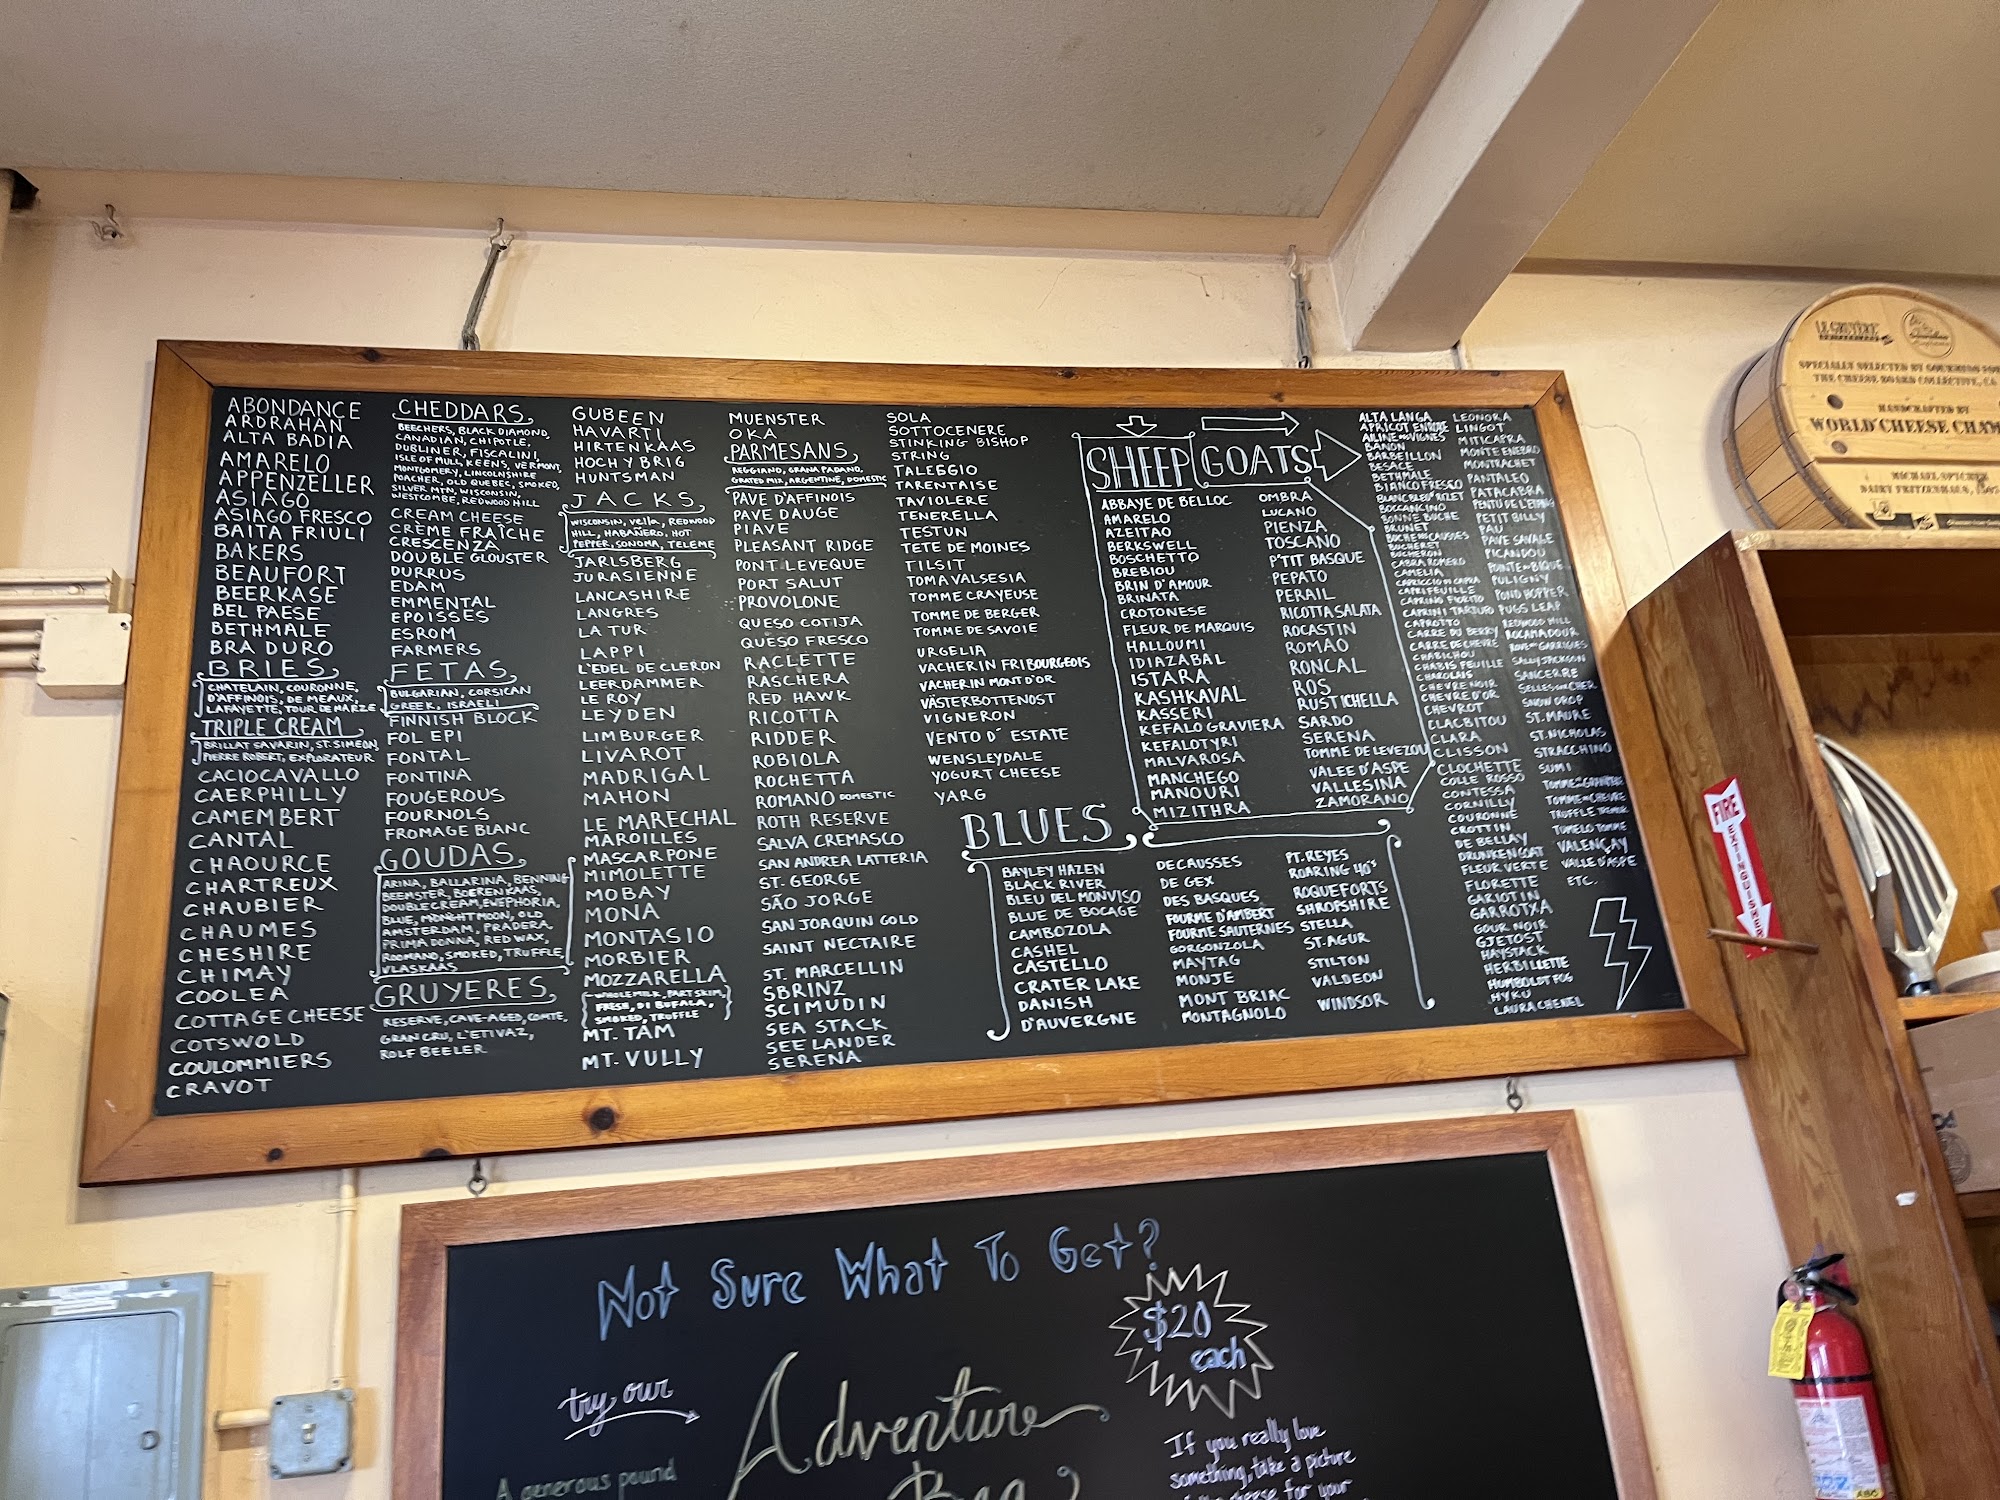 ABONDANCE
ARDRAHAN
ALTA BADIA
AMARELO
APPENZELLER
ASIAGO
ASIAGO FRESCO
BAITA FRIULI
BAKERS
BEAUFORT
BEERKASE
BEL PAESE
BETHMALE
BRA DURO
BRIES
CHATELAIN, COURONNE,
D'AFFINOIS, DE MEAUX,
LAFAYETTE, TOUR DE MARZE
TRIPLE CREAM
BRILLAT SAVARIN, ST. SIMEON,
PIERRE ROBERT, EXPLORATEUR
CACIOCAVALLO
CAERPHILLY
CAMEMBERT
CANTAL
CHAOURCE
CHARTREUX
CHAUBIER
CHAUMES
CHESHIRE
CHIMAY
COOLEA
COTTAGE CHEESE
COTSWOLD
COULOMMIERS
CRAVOT
CHEDDARS
BEECHERS, BLACK DIAMOND,
CANADIAN, CHIPOTLE,
DUBLINER, FISCALINI,
ISLE OF MULL, KEENS, VERMONT,
MONTGOMERY, LINCOLNSHIRE
POACHER, OLD QUEBEC, SMOKED,
SILVER MTN, WISCONSIN,
WESTCOMBE, REDWOOD HILL
CREAM CHEESE
CRÈME FRAÎCHE
CRESCENZA
DOUBLE GLOUSTER
DURRUS
EDAM
EMMENTAL
EPOISSES
ESROM
FARMERS
FETAS
BULGARIAN, CORSICAN
GREEK, ISRAELI
FINNISH BLOCK
FOL EPI
FONTAL
FONTINA
FOUGEROUS
FOURNOLS
FROMAGE BLANC
GOUDAS
ARINA, BALLARINA, BENNING
BEEMSTER, BOERENKAAS,
DOUBLE CREAM, EWEPHORIA,
BLUE, MIDNIGHT MOON, OLD
AMSTERDAM, PRADERA,
PRIMA DONNA, RED WAX,
ROOMANO, SMOKED, TRUFFLE,
VLASKAAS
GRUYERES
RESERVE, CAVE-AGED, COMTE,
GRAN CRU, L'ETIVAZ,
ROLF BEELER
GUBEEN
HAVARTI
HIRTENKAAS
HOCH Y BRIG
HUNTSMAN
JACKS
WISCONSIN, Vella, REDWOOD
HILL, HABAÑERO, HOT
PEPPER, SONOMA, TELEME
JARLSBERG
JURASIENNE
LANCASHIRE
LANGRES
LA TUR
LAPPI
L'EDEL DE CLERON
LEERDAMMER
LE ROY
LEYDEN
LIMBURGER
LIVAROT
MADRIGAL
MAHON
LE MARECHAL
MAROILLES
MASCARPONE
MIMOLETTE
MOBAY
MONA
MONTASIO
MORBIER
MOZZARELLA
WHOLE MILK, PART SKIM,
FRESH, DI BUFALA,
SMOKED, TRUFFLE
MT. TAM
MT. VULLY
MUENSTER
OKA
PARMESANS
REGGIANO, GRANA PADANO,
GRATED MIX, ARGENTINE, DOMESTIC
PAVE D'AFFINOIS
PAVE DAUGE
PIAVE
PLEASANT RIDGE
PONT LEVEQUE
PORT SALUT
PROVOLONE
QUESO COTIJA
QUESO FRESCO
RACLETTE
RASCHERA
RED HAWK
RICOTTA
RIDDER
ROBIOLA
ROCHETTA
ROMANO DOMESTIC
ROTH RESERVE
SALVA CREMASCO
SAN ANDREA LATTERIA
ST. GEORGE
SÃO JORGE
SAN JOAQUIN GOLD
SAINT NECTAIRE
ST. MARCELLIN
SBRINZ
SCIMUDIN
SEA STACK
SEELANDER
SERENA
SOLA
SOTTOCENERE
STINKING BISHOP
STRING
TALEGGIO
TARENTAISE
TAVIOLERE
TENERELLA
TESTUN
TETE DE MOINES
TILSIT
TOMA VALSESIA
TOMME CRAYEUSE
TOMME DE BERGER
TOMME DE SAVOIE
URGELIA
VACHERIN FRIBOURGEOIS
VACHERIN MONT D'OR
VÄSTERBOTTENOST
VIGNERON
VENTO D' ESTATE
WENSLEYDALE
YOGURT CHEESE
YARG
SHEEP
ABBAYE DE BELLOC
AMARELO
AZEITAO
BERKSWELL
BOSCHETTO
BREBIOU
BRIN D'AMOUR
BRINATA
CROTONESE
FLEUR DE MARQUIS
HALLOUMI
IDIAZABAL
ISTARA
KASHKAVAL
KASSERI
KEFALO GRAVIERA
KEFALOTYRI
MALVAROSA
MANCHEGO
MANOURI
MIZITHRA
OMBRA
LUCANO
PIENZA
TOSCANO
P'TIT BASQUE
PEPATO
PERAIL
RICOTTA SALATA
ROCASTIN
ROMAO
RONCAL
ROS
RUSTICHELLA
SARDO
SERENA
TOMME DE LEVEZOU
VALEE D'ASPE
VALLESINA
ZAMORANO
BLUES
BAYLEY HAZEN
BLACK RIVER
BLEU DEL MONVISO
BLUE DE BOCAGE
CAMBOZOLA
CASHEL
CASTELLO
CRATER LAKE
DANISH
D'AUVERGNE
DECAUSSES
DE GEX
DES BASQUES
FOURME D'AMBERT
FOURME SAUTERNES
GORGONZOLA
MAYTAG
MONJE
MONT BRIAC
MONTAGNOLO
PT. REYES
ROARING 40'S
ROQUEFORTS
SHROPSHIRE
STELLA
ST. AGUR
STILTON
VALDEON
WINDSOR
GOATS
ALTA LANGA
APRICOT
BANON
BARBEILLON
BESACE
BETHMALE
BIANCO FRESCO
BOCCANCINO
BONNE BUCHE
BRUNET
BUCHERET
BUCHERON
CABRA ROMERO
CAMELIA
CAPRICCIO DI CAPRA
CAPRIFEUILLE
CAPRINO FIORITO
CAPRINI TARTUFO
CAPROTTO
CARRE DU BERRY
CARRE DE CHEVRE
CHABICHOU
CHABIS FEUILLE
CHAROLAIS
CHEVRE NOIR
CHEVRE D'OR
CHEVROT
CLACBITOU
CLARA
CLISSON
CLOCHETTE
COLLE ROSSO
CONTESSA
CORNILLY
COURONNE
CROTTIN
DE BELLAY
DRUNKEN GOAT
FLEUR VERTE
FLORETTE
GARIOTIN
GARROTXA
GOUR NOIR
GJETOST
HAYSTACK
HERBILLETTE
HUMBOLDT FOG
HYKU
LAURA CHENEL
LEONORA
LINGOT
MITICAPRA
MONTE ENEBRO
MONTRACHET
PANTALEO
PATACABRA
PENTU DE L'ETANG
PETIT BILLY
PAU
PAVE SAVALE
PICANDOU
POINTE DE BIQUE
PULIGNY
POND HOPPER
PUGS LEAP
REDWOOD HILL
ROCAMADOUR
ROVE DES GARRIGUES
SALLY JACKSON
SANCERRE
SELLES SUR CHER
SNOW DROP
ST. MAURE
ST. NICHOLAS
STRACCHINO
SUMI
TOMME DE CHEVRE
TRUFFLE TREMOR
TUMELO TOMME
VALENÇAY
VALLE D'ASPE
ETC.
LE GRUYÈRE
SWITZERLAND
SPECIALLY SELECTED BY GOURMINO FOR
THE CHEESE BOARD COLLECTIVE, CA
HANDCRAFTED BY
WORLD CHEESE CHAM
MICHAEL SPYCHER
DAIRY FRITZENHAUS,
FIRE
EXTINGUISHER
Not Sure What To Get?
try our
Adventure
$20
each
A generous pound
If you really love
something, take a picture
cheese for your